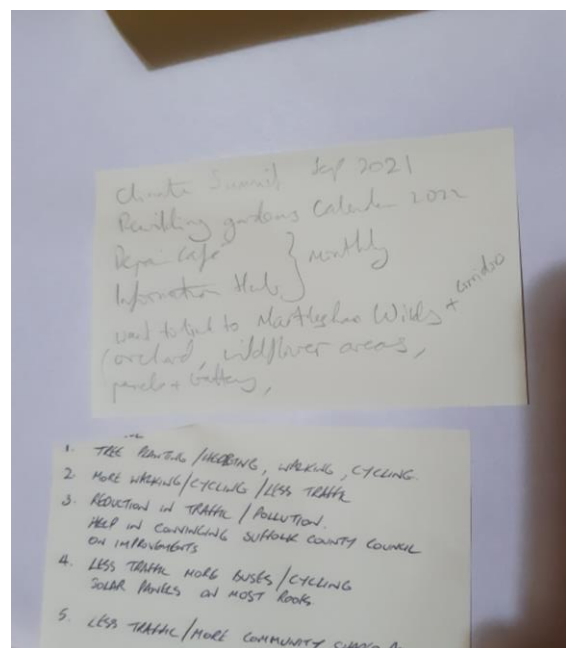 Climate Summit Sep 2021
Rewilding gardens Calendar 2022
Repair Cafe } monthly
Information Hub
want to link to Martlesham Wilds +
(orchard, wildflower areas,
panels + battery,
1. TREE PLANTING / , WALKING, CYCLING.
2 MORE WALKING/CYCLING/LESS TRAFFIC
3. REDUCTION IN TRAFFIC/POLLUTION.
HELP IN CONVINCING SUFFOLK COUNTY COUNCIL
ON IMPROVEMENTS
4. LESS TRAFFIC MORE BUSES/CYCLING
SOLAR PANELS ON MOST ROOFS.
5. LESS TRAFFIC/MORE COMMUNITY